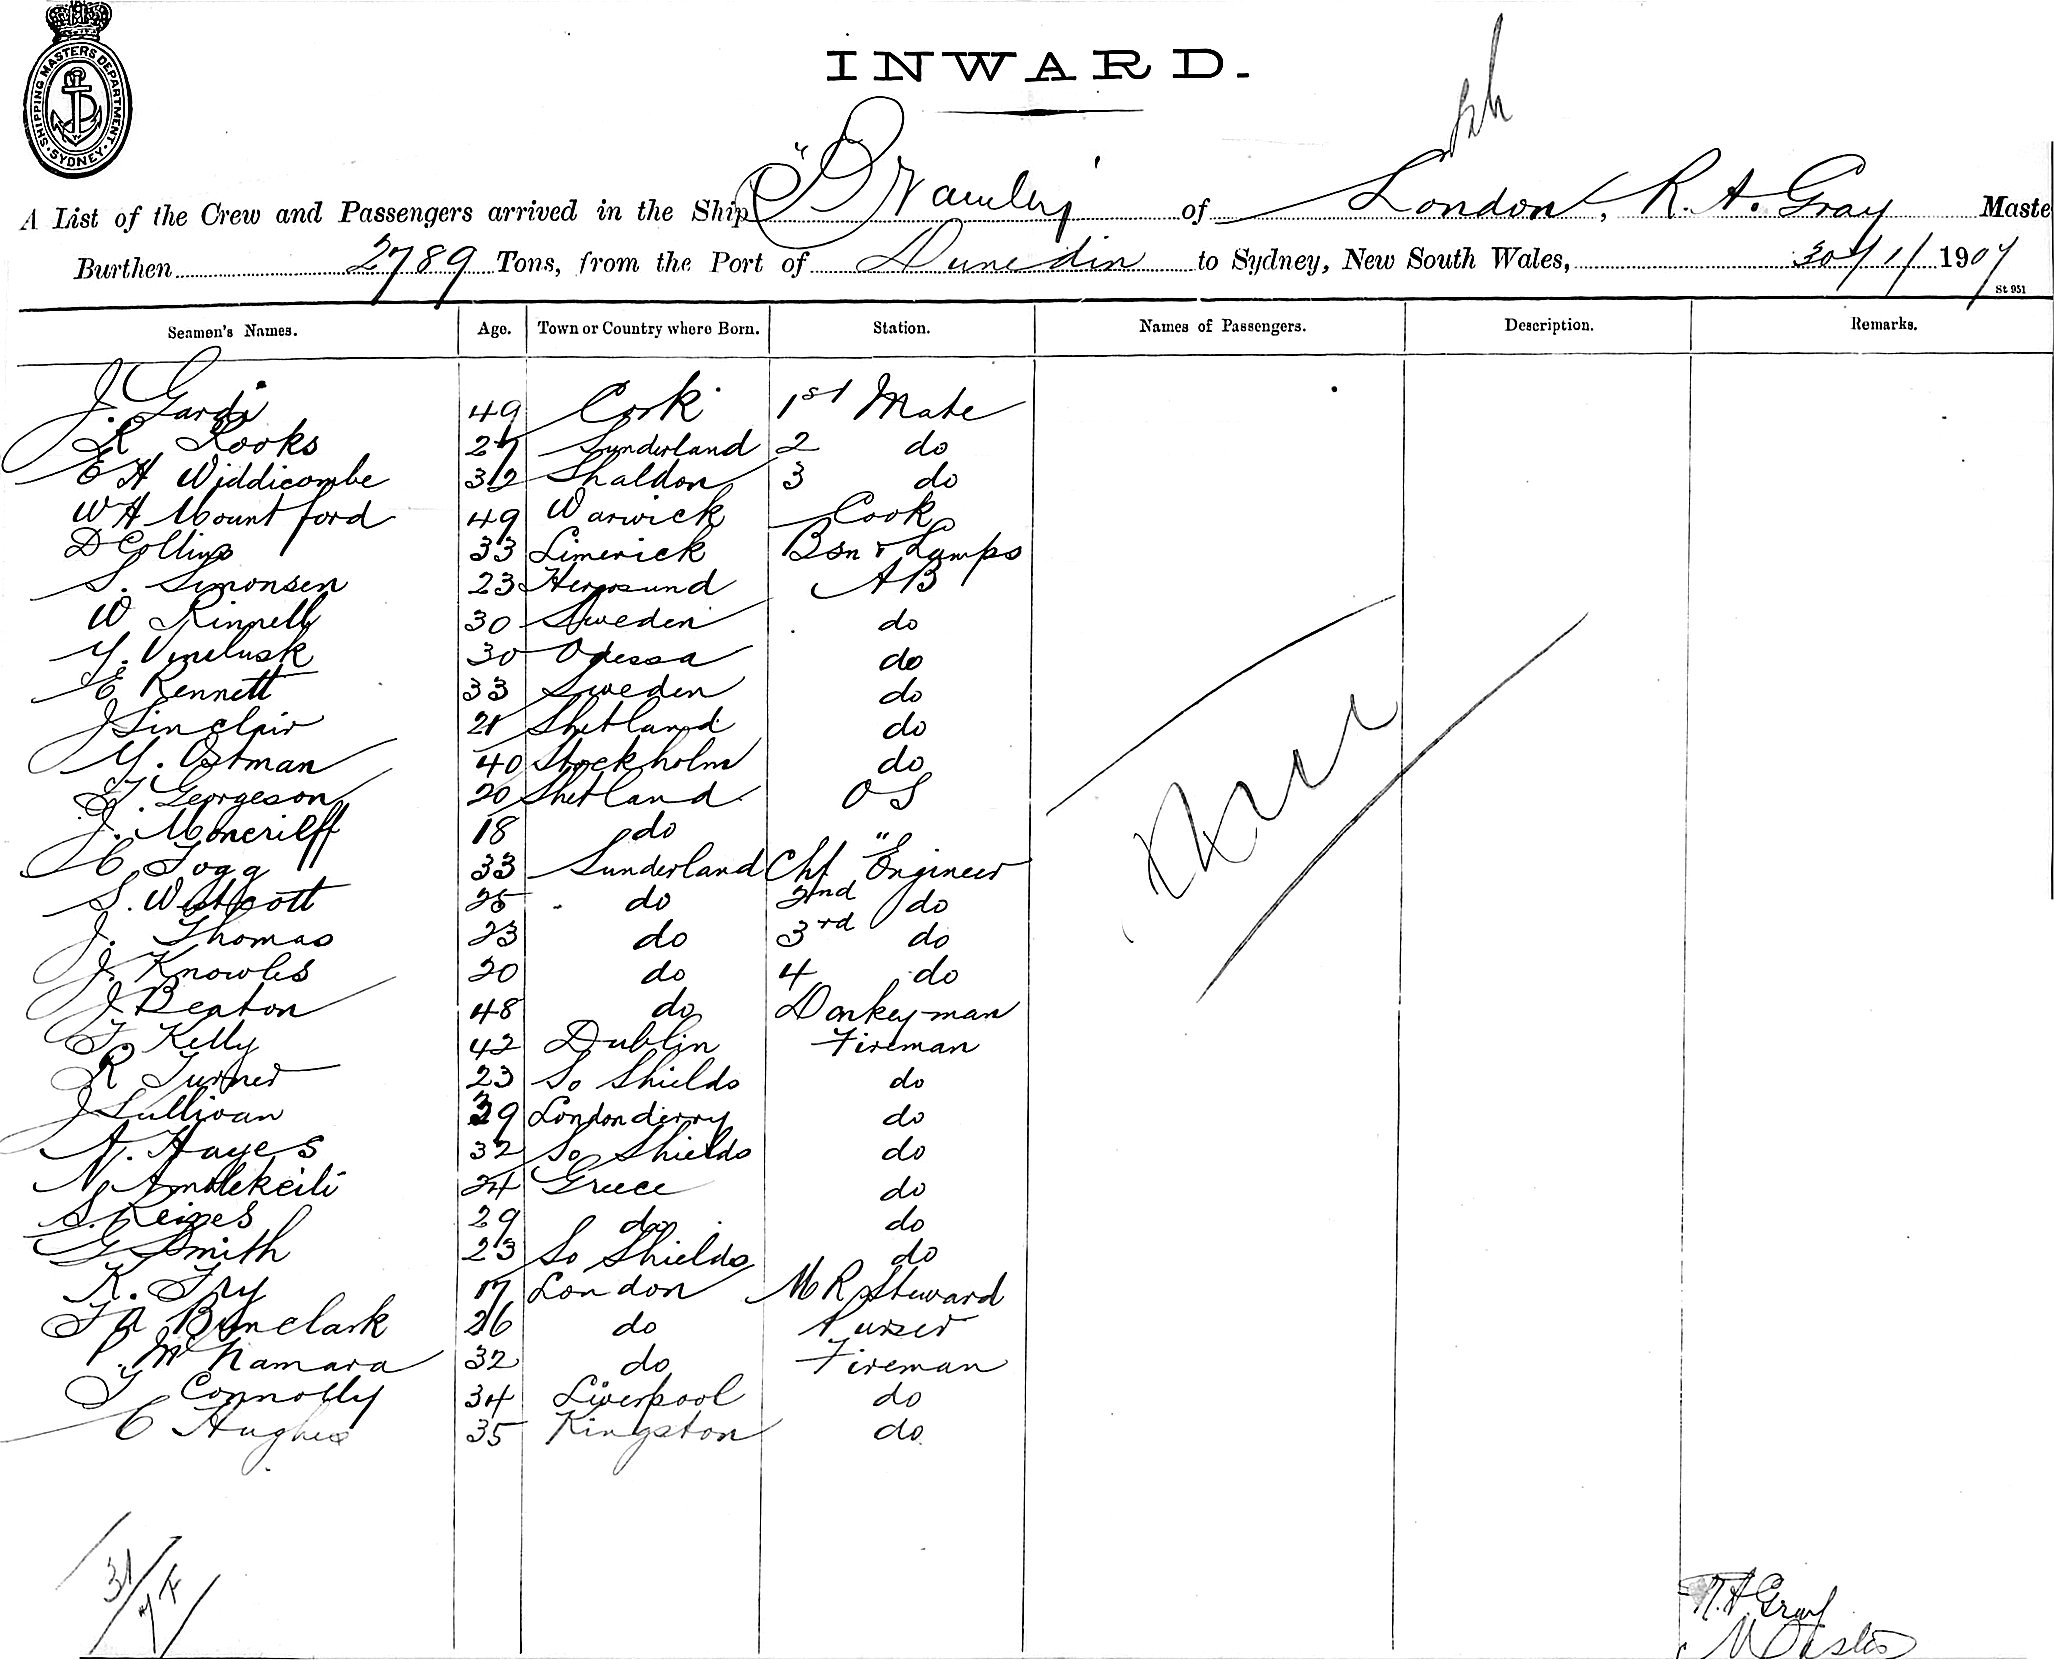 SHIPPING MASTERS DEPARTMENT. SYDNEY
INWARD.
A List of the Crew and Passengers arrived in the Ship "Bramley" of London, R. A. Gray Maste
Burthen 2789 Tons, from the Port of Dunedin to Sydney, New South Wales, 30/1/1907
St 951
Seamen's Names. Age. Town or Country where Born. Station. Names of Passengers. Description. Remarks.
J. 49 Cork 1st Mate
R Rooks 27 Sunderland 2 do
E H Widdicombe 32 Shaldon 3 do
W H Mountford 49 Warwick Cook
D Collins 33 Limerick Bsn & Lamps
S. Simonsen 23 AB
W 30 Sweden do
30 Odessa do
E Rennett 33 Sweden do
J Sinclair 21 Shetland do
Y. Ostman 40 Stockholm do
Georgeson 20 Shetland OS
J. Moncrilff 18 do "
C Togg 33 Sunderland Chf Engineer
S. Westcott 25 do 2nd do
J. Thomas 23 do 3rd do
J. Knowles 20 do 4 do
J Beaton 48 do Donkeyman
T Kelly 42 Dublin Fireman
R Turner 23 So Shields do
J Sullivan 39 Londonderry do
A. Hayes 32 So Shields do
N 24 Greece do
S. Reizes 29 do do
G Smith 23 So Shields do
K. Fry 17 London M R Steward
Binclark 26 do Purser
P. McNamara 32 do Fireman
T Connolly 34 Liverpool do
C Hughes 35 Kingston do
31
R. A. Gray
Master